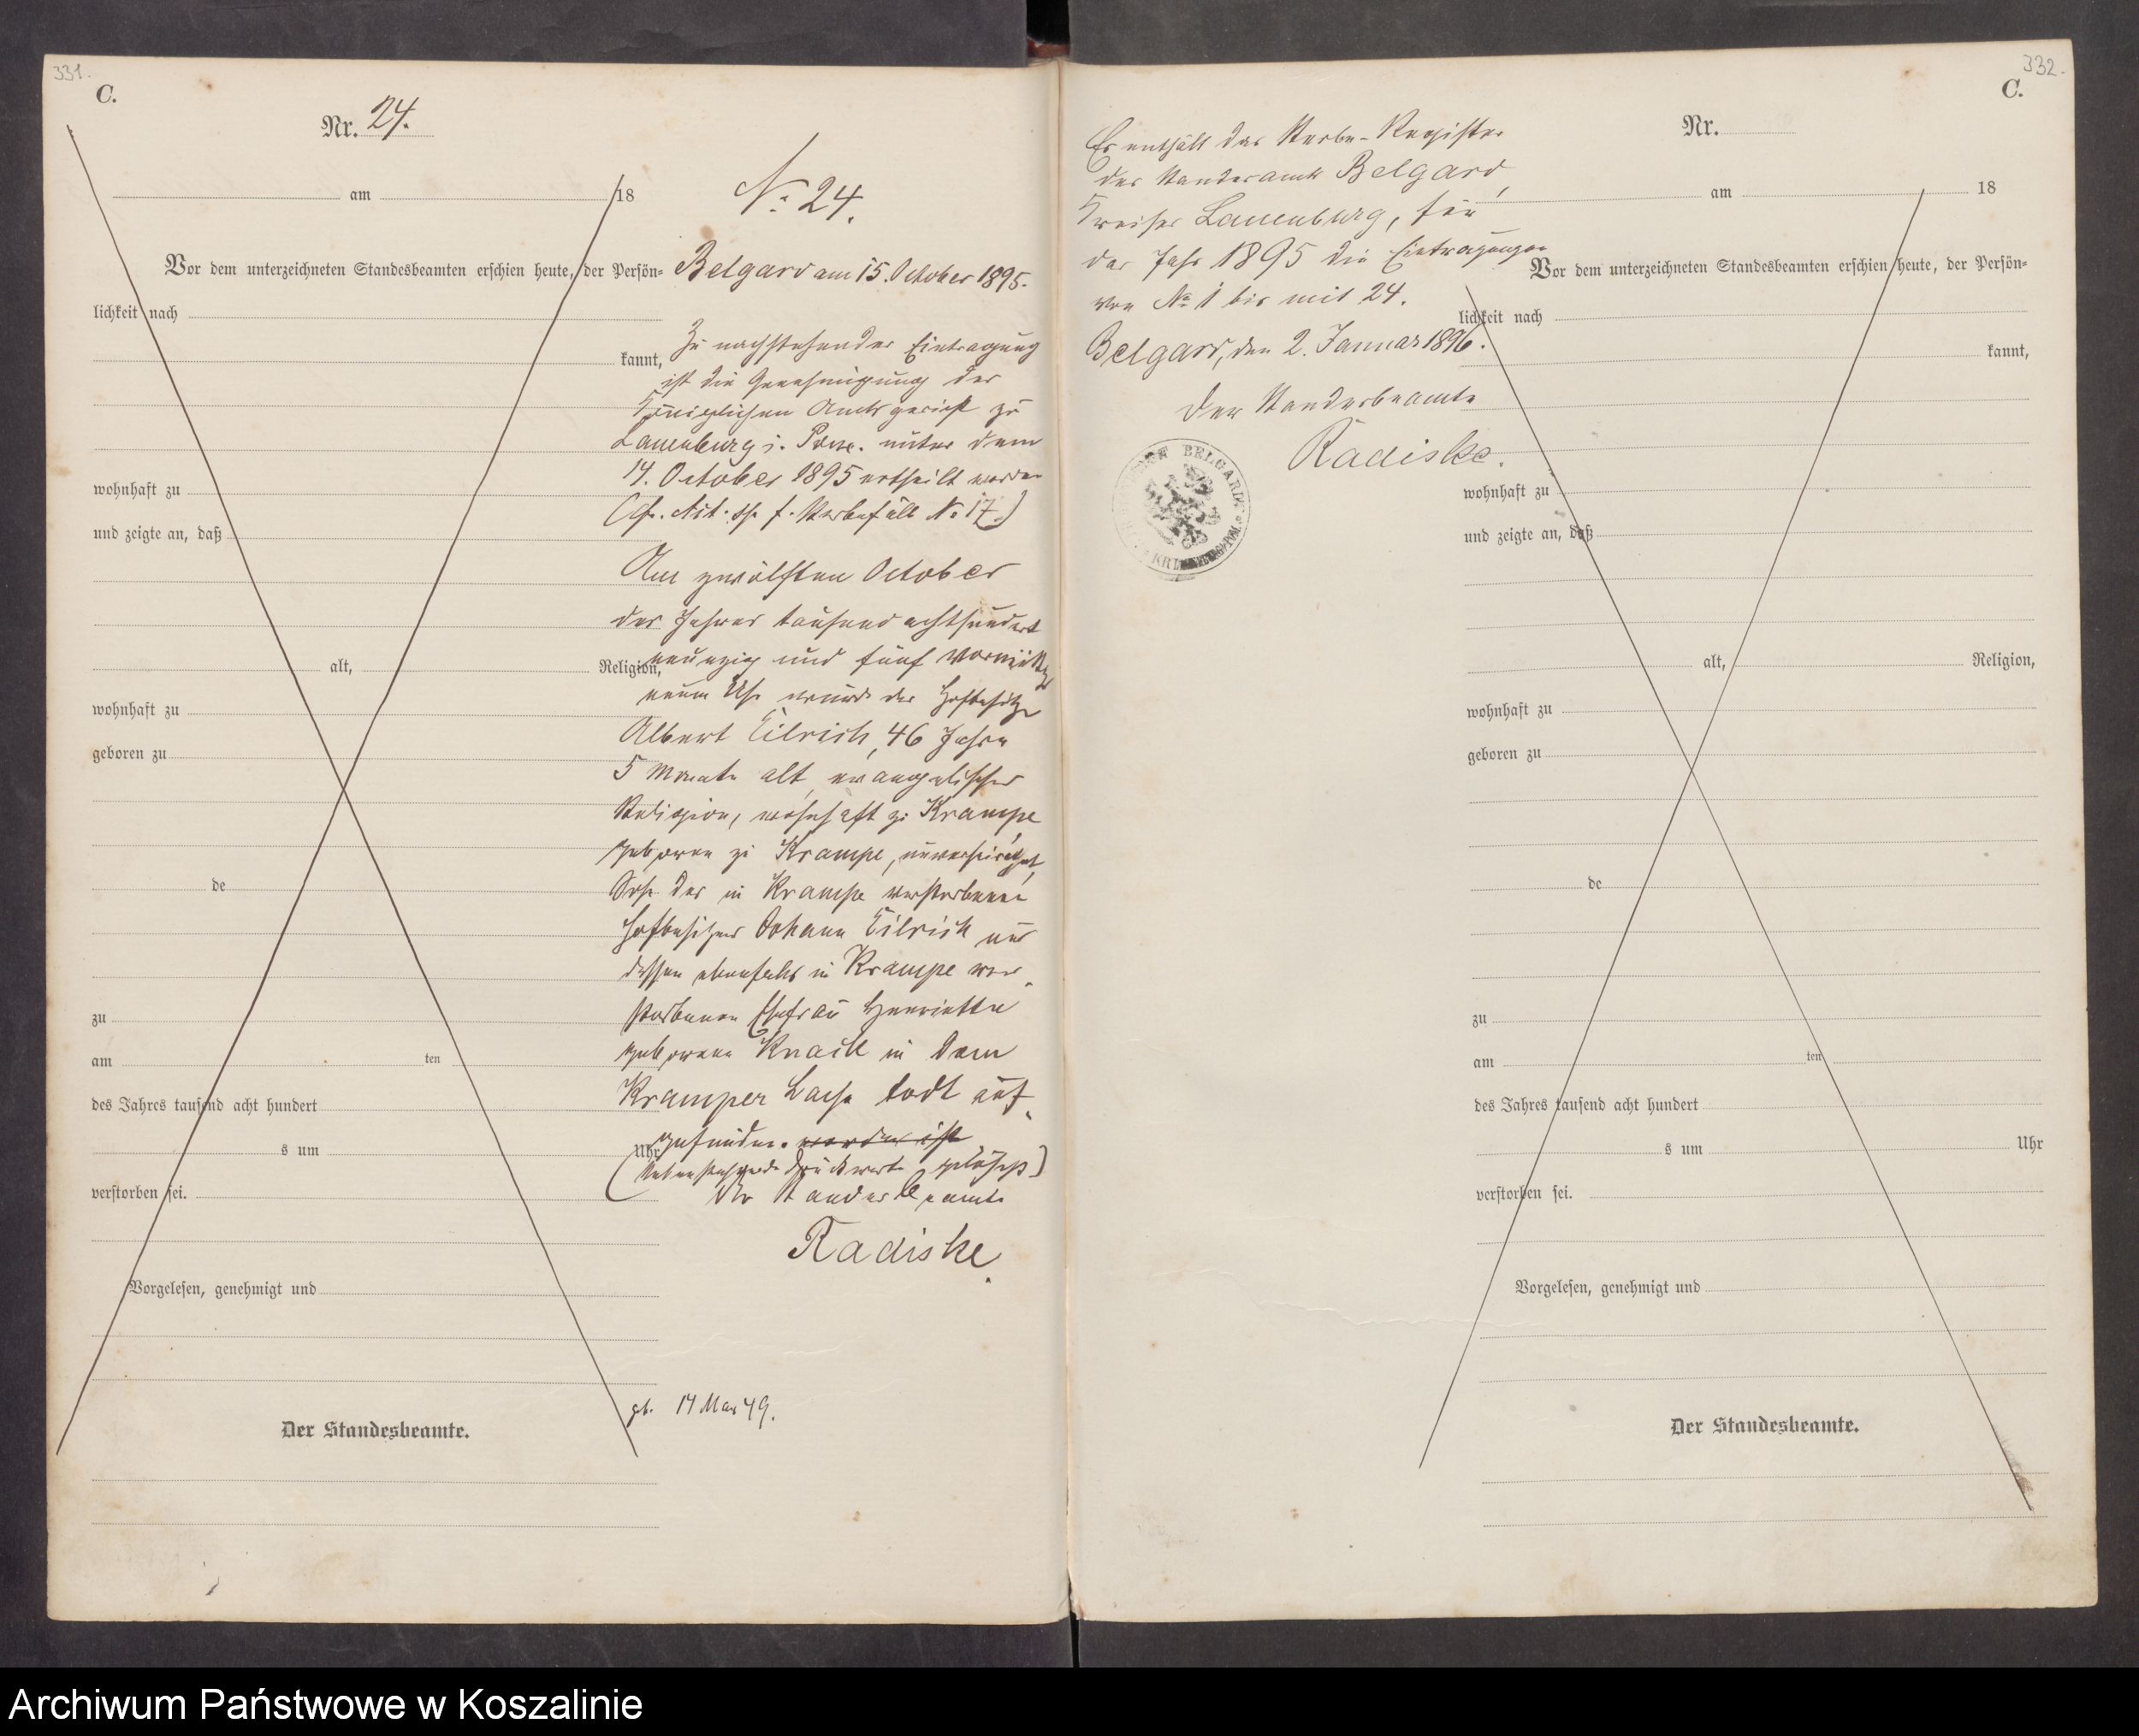 331.
C.
Nr. 24.
am 18
Vor dem unterzeichneten Standesbeamten erschien heute, der Persön-
lichkeit nach
kannt,
wohnhaft zu
und zeigte an, daß
alt, Religion,
wohnhaft zu
geboren zu
de
zu
am ten
des Jahres tausend acht hundert
s um Uhr
verstorben sei.
Vorgelesen, genehmigt und
Der Standesbeamte.
No 24.
Belgard am 15. October 1895.
Zu nachstehender Eintragung
ist die Genehmigung des
Königlichen Amtsgericht zu
Lauenburg i. Pom. unter dem
14. October 1895 ertheilt worden
f. Sterbefälle No 17.)
Am zwölften October
des Jahres tausend achthundert
neunzig und fünf Vormittags
neun Uhr wurde der Hofbesitzer
Albert Eilrich, 46 Jahre
5 Monate alt, evangelischer
Religion, wohnhaft zu Krampe,
geboren zu Krampe, unverheirathet,
Sohn des in Krampe verstorbenen
Hofbesitzers Johann Eilrich und
dessen ebenfalls in Krampe ver-
storbenen Ehefrau Henriette
geborene Knaak in dem
Kramper Bache todt auf-
gefunden. worden ist
(Nebenstehende Druckworte gelöscht)
Der Standesbeamte
Radiske.
gb. 14 Mai 49.
332.
C.
Es enthält das Sterbe-Register
des Standesamts Belgard,
Kreises Lauenburg, für
das Jahr 1895 die Eintragungen
von No 1 bis mit 24.
Belgard, den 2. Januar 1896.
Der Standesbeamte
Radiske.
BELGARD
Nr.
am 18
Vor dem unterzeichneten Standesbeamten erschien heute, der Persön-
lichkeit nach
kannt,
wohnhaft zu
und zeigte an, daß
alt, Religion,
wohnhaft zu
geboren zu
de
zu
am ten
des Jahres tausend acht hundert
s um Uhr
verstorben sei.
Vorgelesen, genehmigt und
Der Standesbeamte.
Archiwum Państwowe w Koszalinie